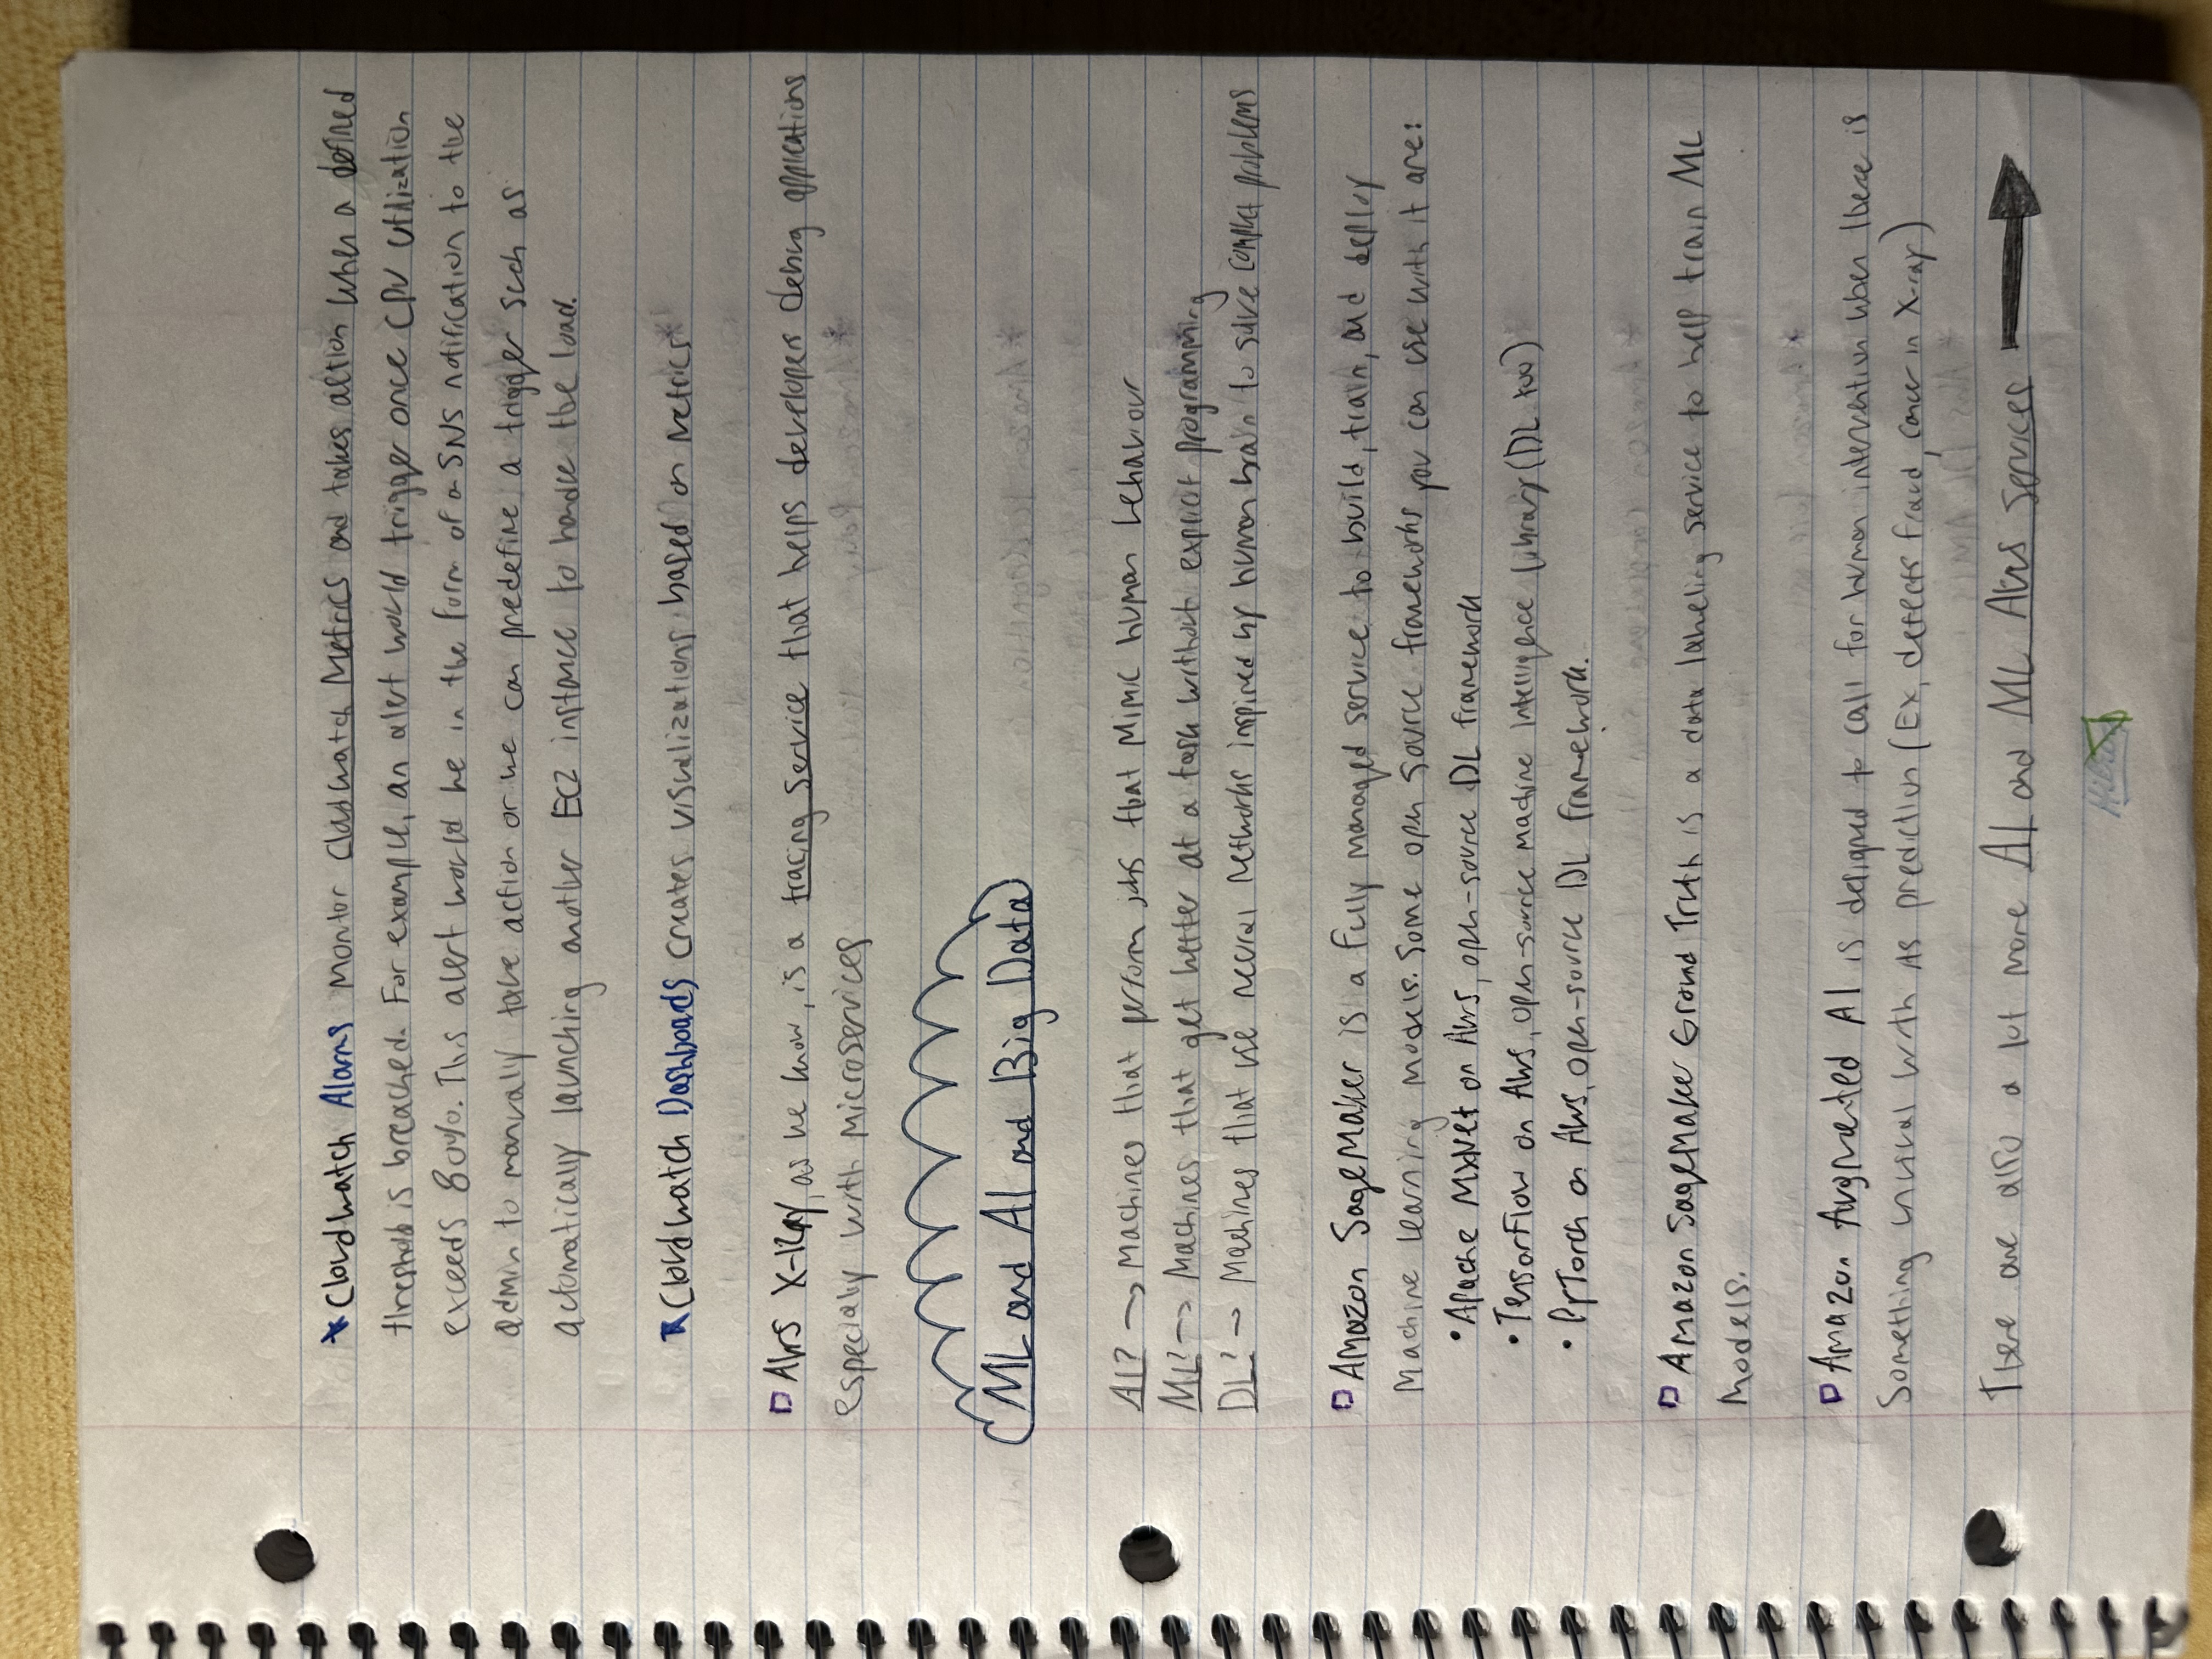 * Cloudwatch Alarms monitor Cloudwatch Metrics and takes action when a defined
threshold is breached. For example, an alert would trigger once CPU utilization
exceeds 80%. This alert would be in the form of a SNS notification to the
admin to manually take action or we can predefine a trigger such as
automatically launching another EC2 instance to handle the load.
* Cloudwatch Dashboards creates visualizations based on metrics
□ AWS X-Ray, as we know, is a tracing service that helps developers debug applications
especially with microservices
ML and AI and Big Data
AI? → Machines that perform jobs that mimic human behaviour
ML? → Machines that get better at a task without explicit programming
DL? → Machines that use neural networks inspired by human brain to solve complex problems
□ Amazon SageMaker is a fully managed service to build, train, and deploy
machine learning models. Some open source frameworks you can use with it are:
• Apache MXNet on AWS, open-source DL framework
• TensorFlow on AWS, open-source machine intelligence library (DL too)
• PyTorch on AWS, open-source DL framework.
□ Amazon SageMaker Ground Truth is a data labeling service to help train ML
models.
□ Amazon Augmented AI is designed to call for human intervention when there is
something unusual with its prediction (Ex, detects fraud, cancer in X-ray)
There are also a lot more AI and ML AWS services →
Hilroy